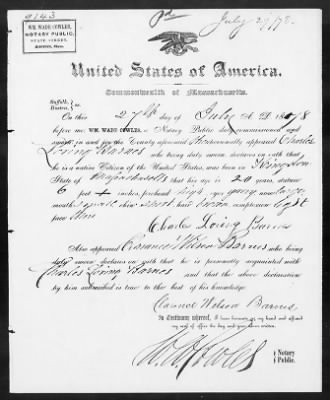 9143
July 29/78
WM. WADE COWLES,
NOTARY PUBLIC,
STATE STREET,
BOSTON, Mass.
United States of America.
Commonwealth of Massachusetts.
Suffolk, ss.
Boston,
On this 27th day of July A. D. 1878
before me WM. WADE COWLES, a Notary Public duly commissioned and
sworn in and for the County aforesaid Personally appeared Charles
Loring Barnes who being duly sworn declares on oath that
he is a native Citizen of the United States, was born in
State of Massachusetts that his age is 20 years, stature
6 feet inches, forehead high eyes gray nose large
mouth small chin short hair brown complexion light
face thin
Charles Loring Barnes
Also appeared Clarence Wilson Barnes who being
duly sworn declares on oath that he is personally acquainted with
Charles Loring Barnes and that the above declaration
by him subscribed is true to the best of his knowledge.
Clarence Wilson Barnes,
In testimony whereof, I have hereunto set my hand and affixed
my seal of office the day and year above written.
W. W. Cowles Notary
Public.